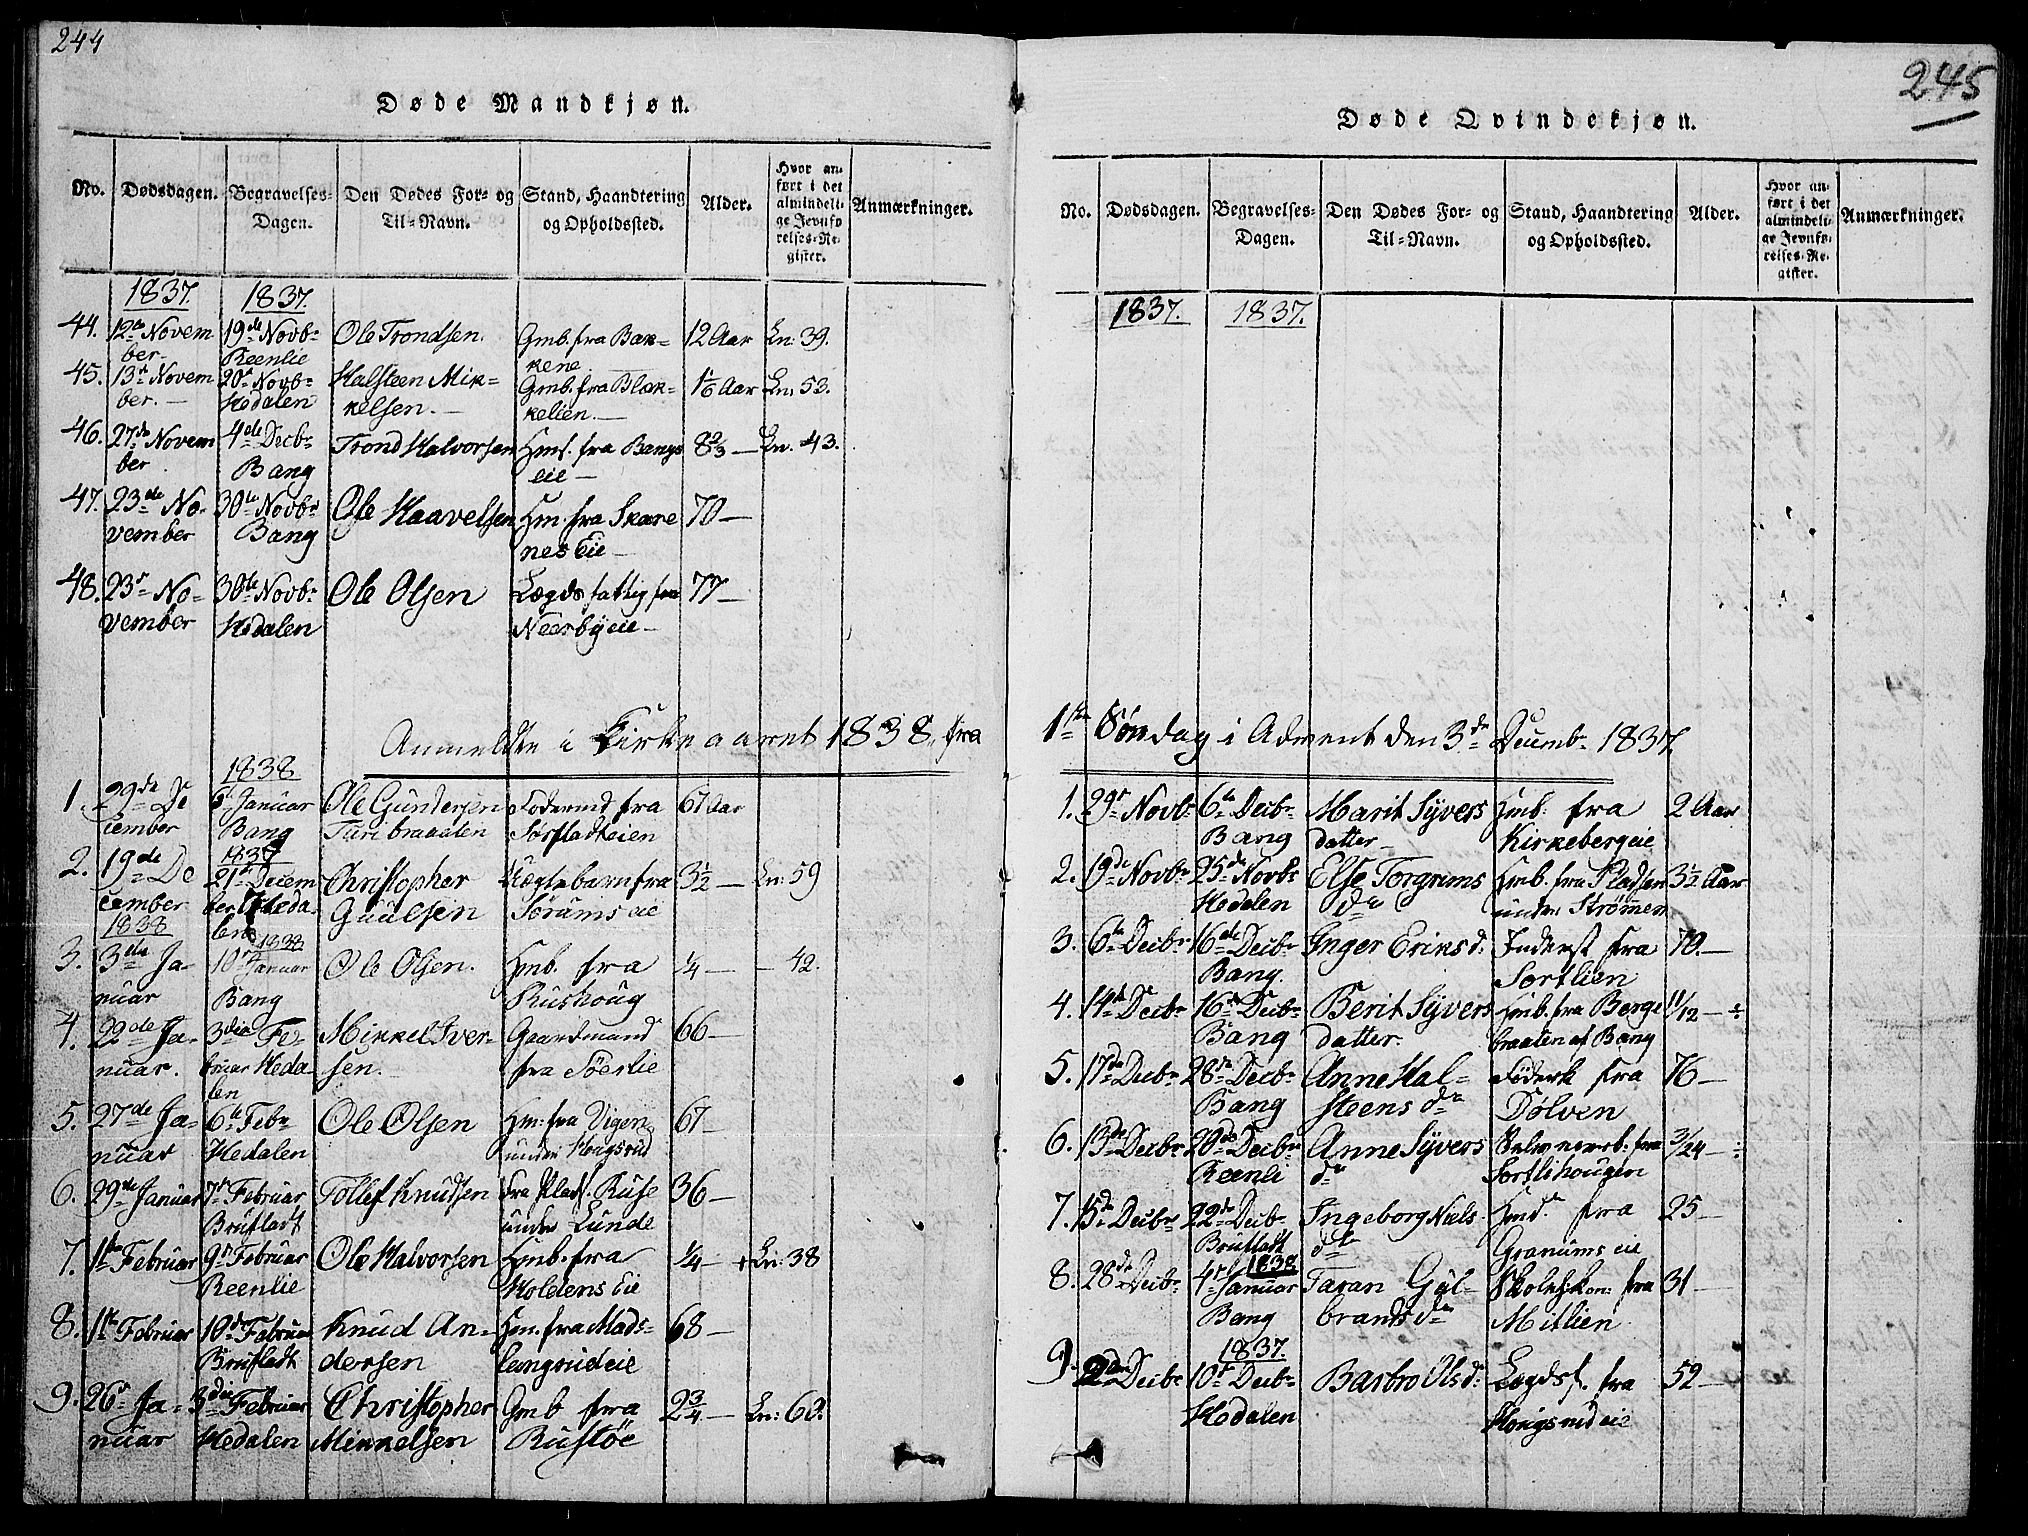 244
Døde Mandkjøn.
No. Dødsdagen. Begravelses-Dagen. Den Dødes For- og Til-Navn. Stand, Haandtering og Opholdssted. Alder. Hvor anført i det almindelige Jevnførelses-Register. Anmærkninger.
1837. 1837.
44. 12te November. 19de Novbr Reenlie Ole Trondsen. Gmb. fra Bakkene 12 Aar Ln: 39.
45. 13de November. 20de Novbr Hedalen Halsteen Mikkelsen. Gmb. fra Blækkelien. 1 1/6 Aar Ln: 53.
46. 27de November 4de Decbr Bang Trond Halvorsen Hms. fra Bangs eie 8 2/3 Ln. 43.
47. 23de November 30te Novbr Bang Ole Haavelsen Hm fra Skarenes Eie 70
48. 23de November 30te Novbr Hedalen Ole Olsen Lægdsfattig fra Neerbyeie 77
Anmeldte i Kirkeaaret 1838, fra
1838
1. 29de December 5te Januar Bang Ole Gundersen Turibraaten Fodermd fra Sørfladteien 67 Aar
1837
2. 19de December 21de December Hedalen Christopher Guulsen Lægdsbarn fra Sørums eie 3 1/2 Ln: 59
1838 1838
3. 3die Januar 10de Januar Bang Ole Olsen. Hmb. fra Rushoug 1/4 42.
4. 22de Januar. 3die Februar Hedalen Mikkel Iversen. Gaardmand fra Søerlie 66
5. 27de Januar 6te Febr Hedalen Ole Olsen Hm: fra Vigen under Hougsrud 67
6. 29de Januar 7de Februar Brufladt Tollef Knudsen fra Plads. Ruse under Lunde 36
7. 1te Februar 9de Februar Reenlie Ole Halvorsen Hmb. fra Holdens Eie 1/4 + Ln: 38
8. 1te Februar 10de Februar Brufladt Knud Andersen Hm. fra Madslangrudeie 68
9. 26de Januar 3die Februar Hedalen Christopher Mikkelsen Gmb fra Rustøe 2 3/4 Ln: 60.
245
Døde Qvindekjøn.
No. Dødsdagen. Begravelses-Dagen. Den Dødes For- og Til-Navn. Stand, Haandtering og Opholdssted. Alder. Hvor anført i det almindelige Jevnførelses-Register. Anmærkninger.
1837. 1837.
1ste Søndag i Advent den 3de Decembr 1837.
1. 29de Novbr 6te Decbr Bang Marit Syversdatter Hmb. fra Kirkebergeie 2 Aar
2. 19de Novbr 25de Novbr Hedalen Else Torgrims dr Hmb. fra Pladsen under Strømen 3 1/2 Aar
3. 6te Decbr 16de Decbr Bang. Inger Eriks d: Inderst fra Sørtlien 70.
4. 14de Decbr 16de Decbr Bang Berit Syversdatter. Hmb. fra Bergebraaten af Bang 11/12 ÷
5. 17de Decbr 28de Decbr Bang Anne Halsteens dr Føderk fra Dølven 76
6. 13de Decbr 20de Decbr Reenli Anne Syvers dr fra Sørtlihougen 3/24 ÷
7. 15de Decbr 22de Decbr Brufladt Ingeborg Niels dr Hmd. fra Granums eie 25
1838
8. 28de Decbr 4de Januar Bang Taran Gulbrands dr fra Mitlien 31
1837.
9. 2den Decbr 10de Decbr Hedalen Barbro Ols dr Lægdsf. fra Hougsrudeie 52